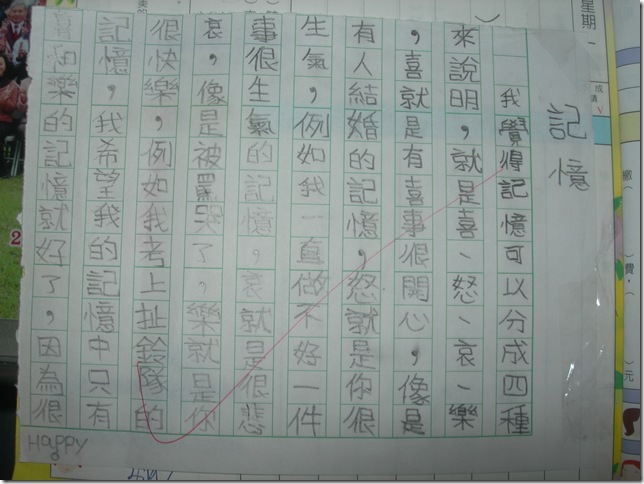 星期一
成績
繳
）費，
）元
記憶
我覺得記憶可以分成四種
來說明，就是喜、怒、哀、樂
，喜就是有喜事很開心，像是
有人結婚的記憶，怒就是你很
生氣，例如我一直做不好一件
事很生氣的記憶，哀就是很悲
哀，像是被罵哭了，樂就是你
很快樂，例如我考上扯鈴隊的
記憶，我希望我的記憶中只有
喜和樂的記憶就好了，因為很
Happy